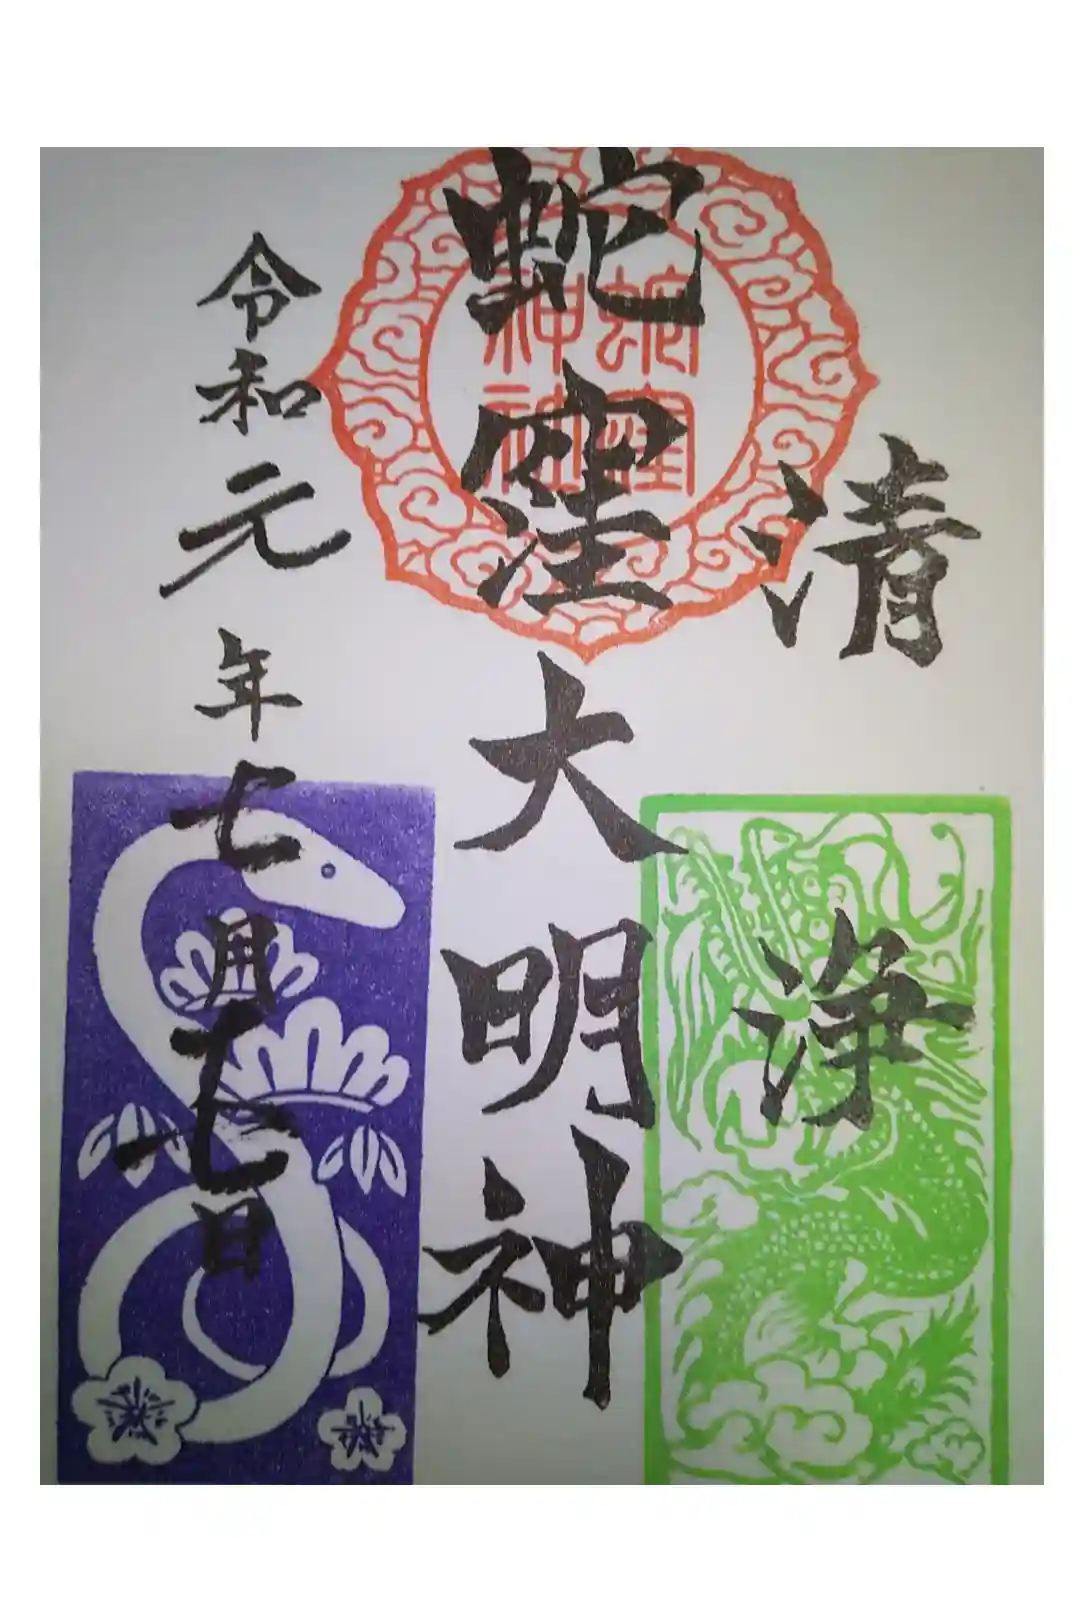 清浄
蛇窪大明神
蛇窪
神社
令和元年七月十七日